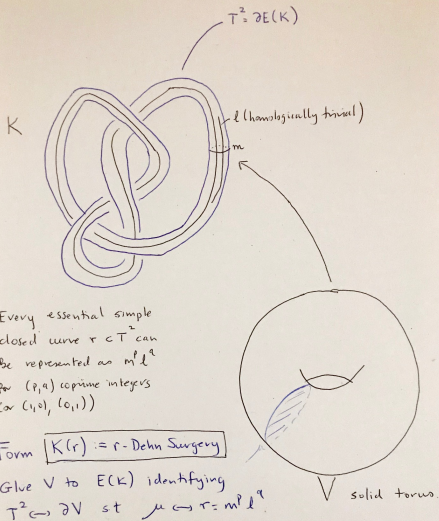 T² = ∂E(K)
K
l (homologically trivial)
m
Every essential simple
closed curve r ⊂ T² can
be represented as m^p l^q
for (p,q) coprime integers
(or (1,0), (0,1))
Form K(r) := r-Dehn Surgery
Glue V to E(K) identifying
T² ↔ ∂V st μ ↔ r = m^p l^q
V solid torus.